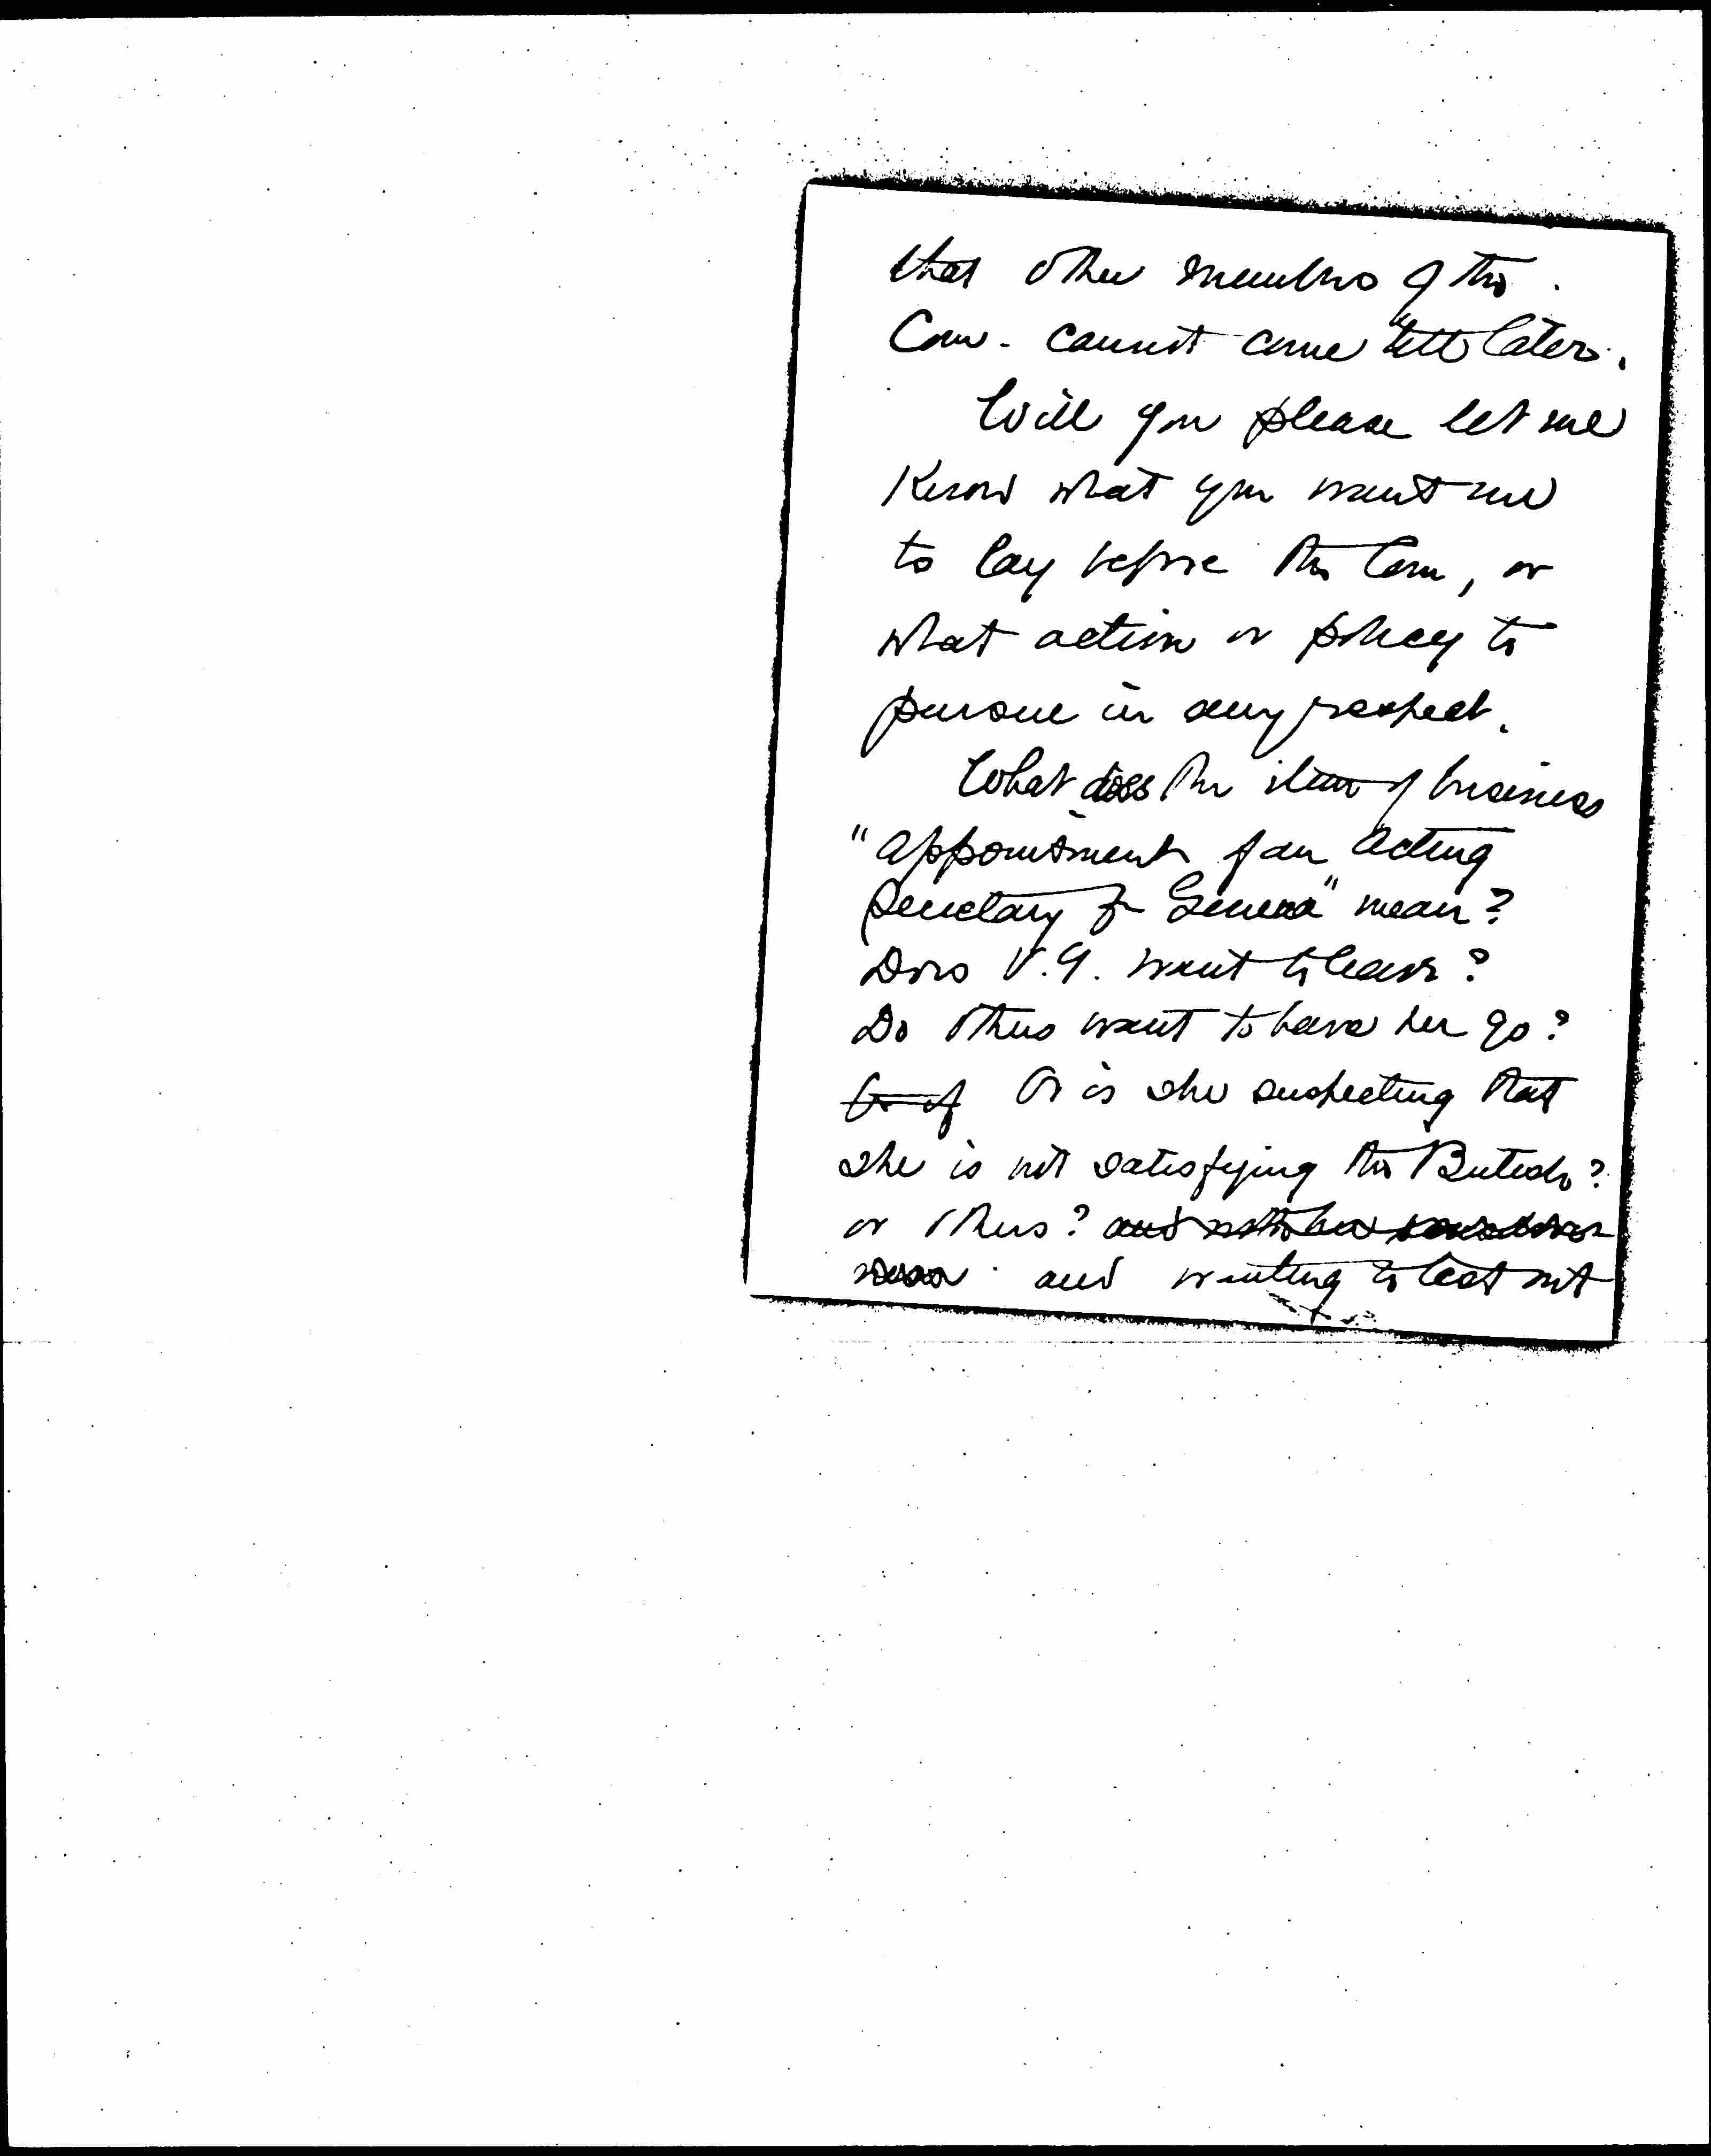 that other members of the
Com. cannot come till later.
Will you please let me
know what you want me
to lay before the Com, or
what action or policy to
pursue in any respect.
What does the item of business
"appointment of an acting
Secretary for Geneva" mean?
Does V.G. want to leave?
Do others want to have her go?
Or if Or is she suspecting that
she is not satisfying the British?
or others? and
and wanting to test out